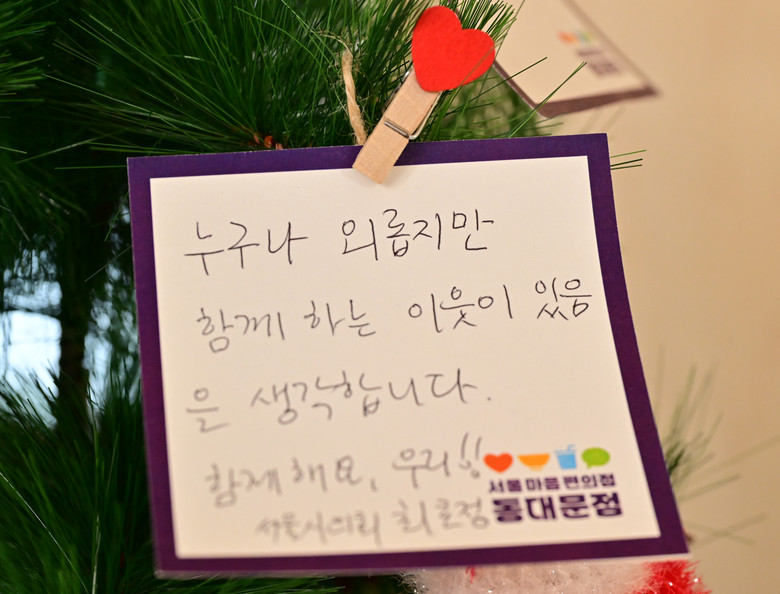 누구나 외롭지만
함께 하는 이웃이 있음
을 생각합니다.
함께해요, 우리!!
서울시의회
서울마음편의점
동대문점